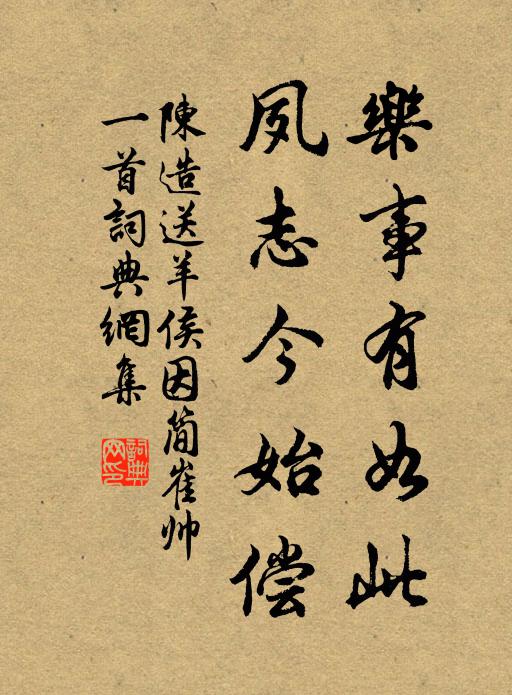 樂事有如此
夙志今始偿
陳造送羊侯因簡崔帅
一首詞典網集
詞典网印